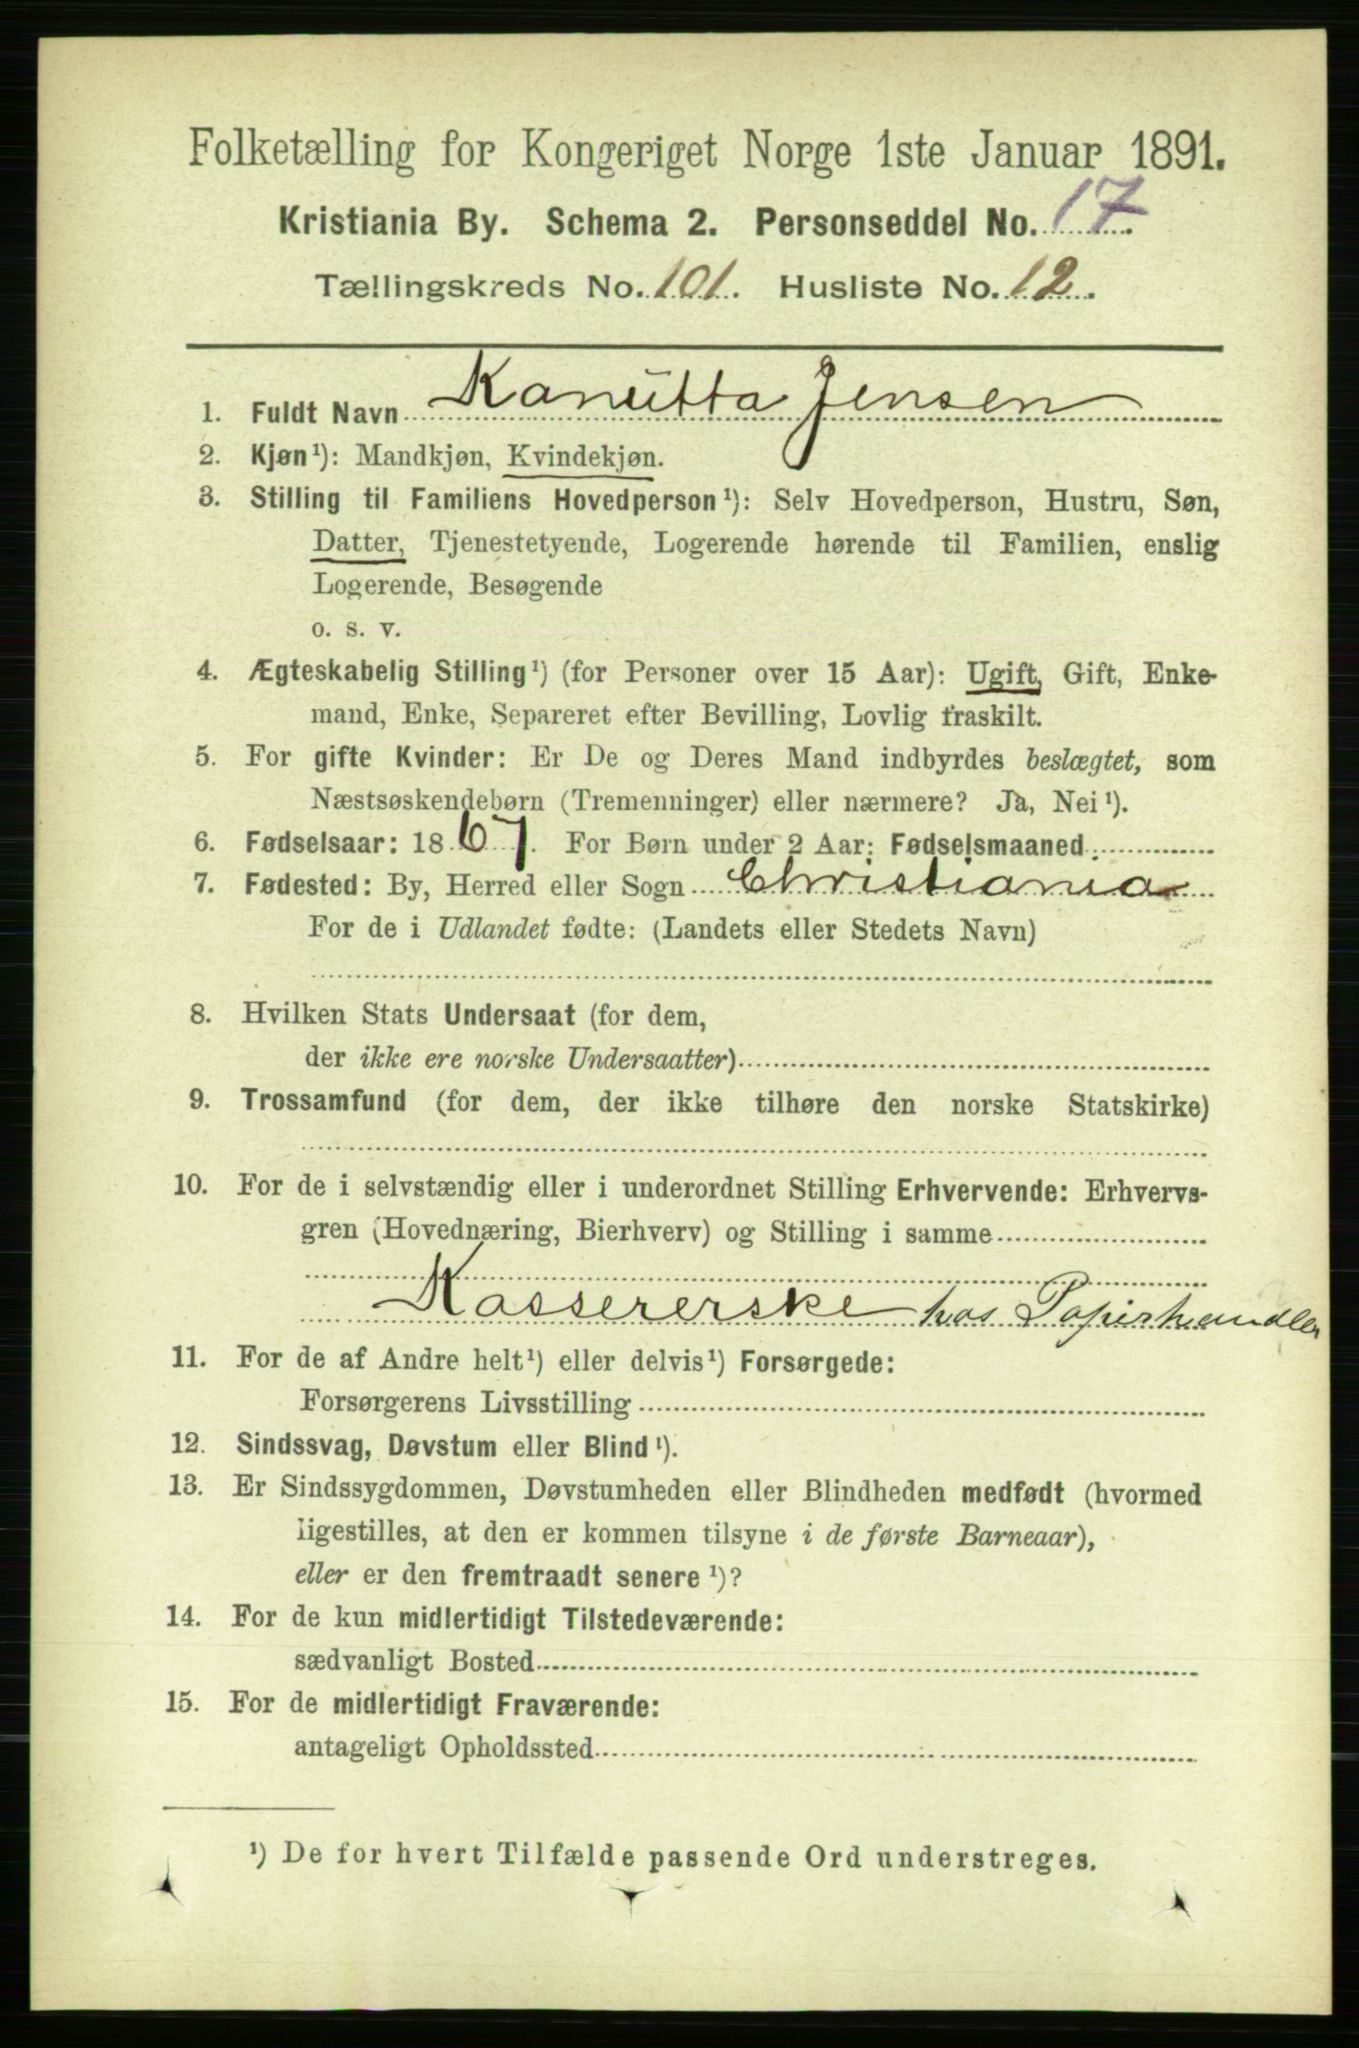 Folketælling for Kongeriget Norge 1ste Januar 1891.
Kristiania By. Schema 2. Personseddel No. 17.
Tællingskreds No. 101. Husliste No. 12.
1. Fuldt Navn Kanutta Jensen
2. Kjøn¹): Mandkjøn, Kvindekjøn.
3. Stilling til Familiens Hovedperson¹): Selv Hovedperson, Hustru, Søn,
Datter, Tjenestetyende, Logerende hørende til Familien, enslig
Logerende, Besøgende
o. s. v.
4. Ægteskabelig Stilling¹) (for Personer over 15 Aar): Ugift, Gift, Enke-
mand, Enke, Separeret efter Bevilling, Lovlig fraskilt.
5. For gifte Kvinder: Er De og Deres Mand indbyrdes beslægtet, som
Næstsøskendebørn (Tremenninger) eller nærmere? Ja, Nei¹).
6. Fødselsaar: 1867. For Børn under 2 Aar: Fødselsmaaned
7. Fødested: By, Herred eller Sogn Christiania
For de i Udlandet fødte: (Landets eller Stedets Navn)
8. Hvilken Stats Undersaat (for dem,
der ikke ere norske Undersaatter)
9. Trossamfund (for dem, der ikke tilhøre den norske Statskirke)
10. For de i selvstændig eller i underordnet Stilling Erhvervende: Erhvervs-
gren (Hovednæring, Bierhverv) og Stilling i samme
Kassererske hos Papirhandler
11. For de af Andre helt¹) eller delvis¹) Forsørgede:
Forsørgerens Livsstilling
12. Sindssvag, Døvstum eller Blind¹).
13. Er Sindssygdommen, Døvstumheden eller Blindheden medfødt (hvormed
ligestilles, at den er kommen tilsyne i de første Barneaar),
eller er den fremtraadt senere¹)?
14. For de kun midlertidigt Tilstedeværende:
sædvanligt Bosted
15. For de midlertidigt Fraværende:
antageligt Opholdssted
¹) De for hvert Tilfælde passende Ord understreges.